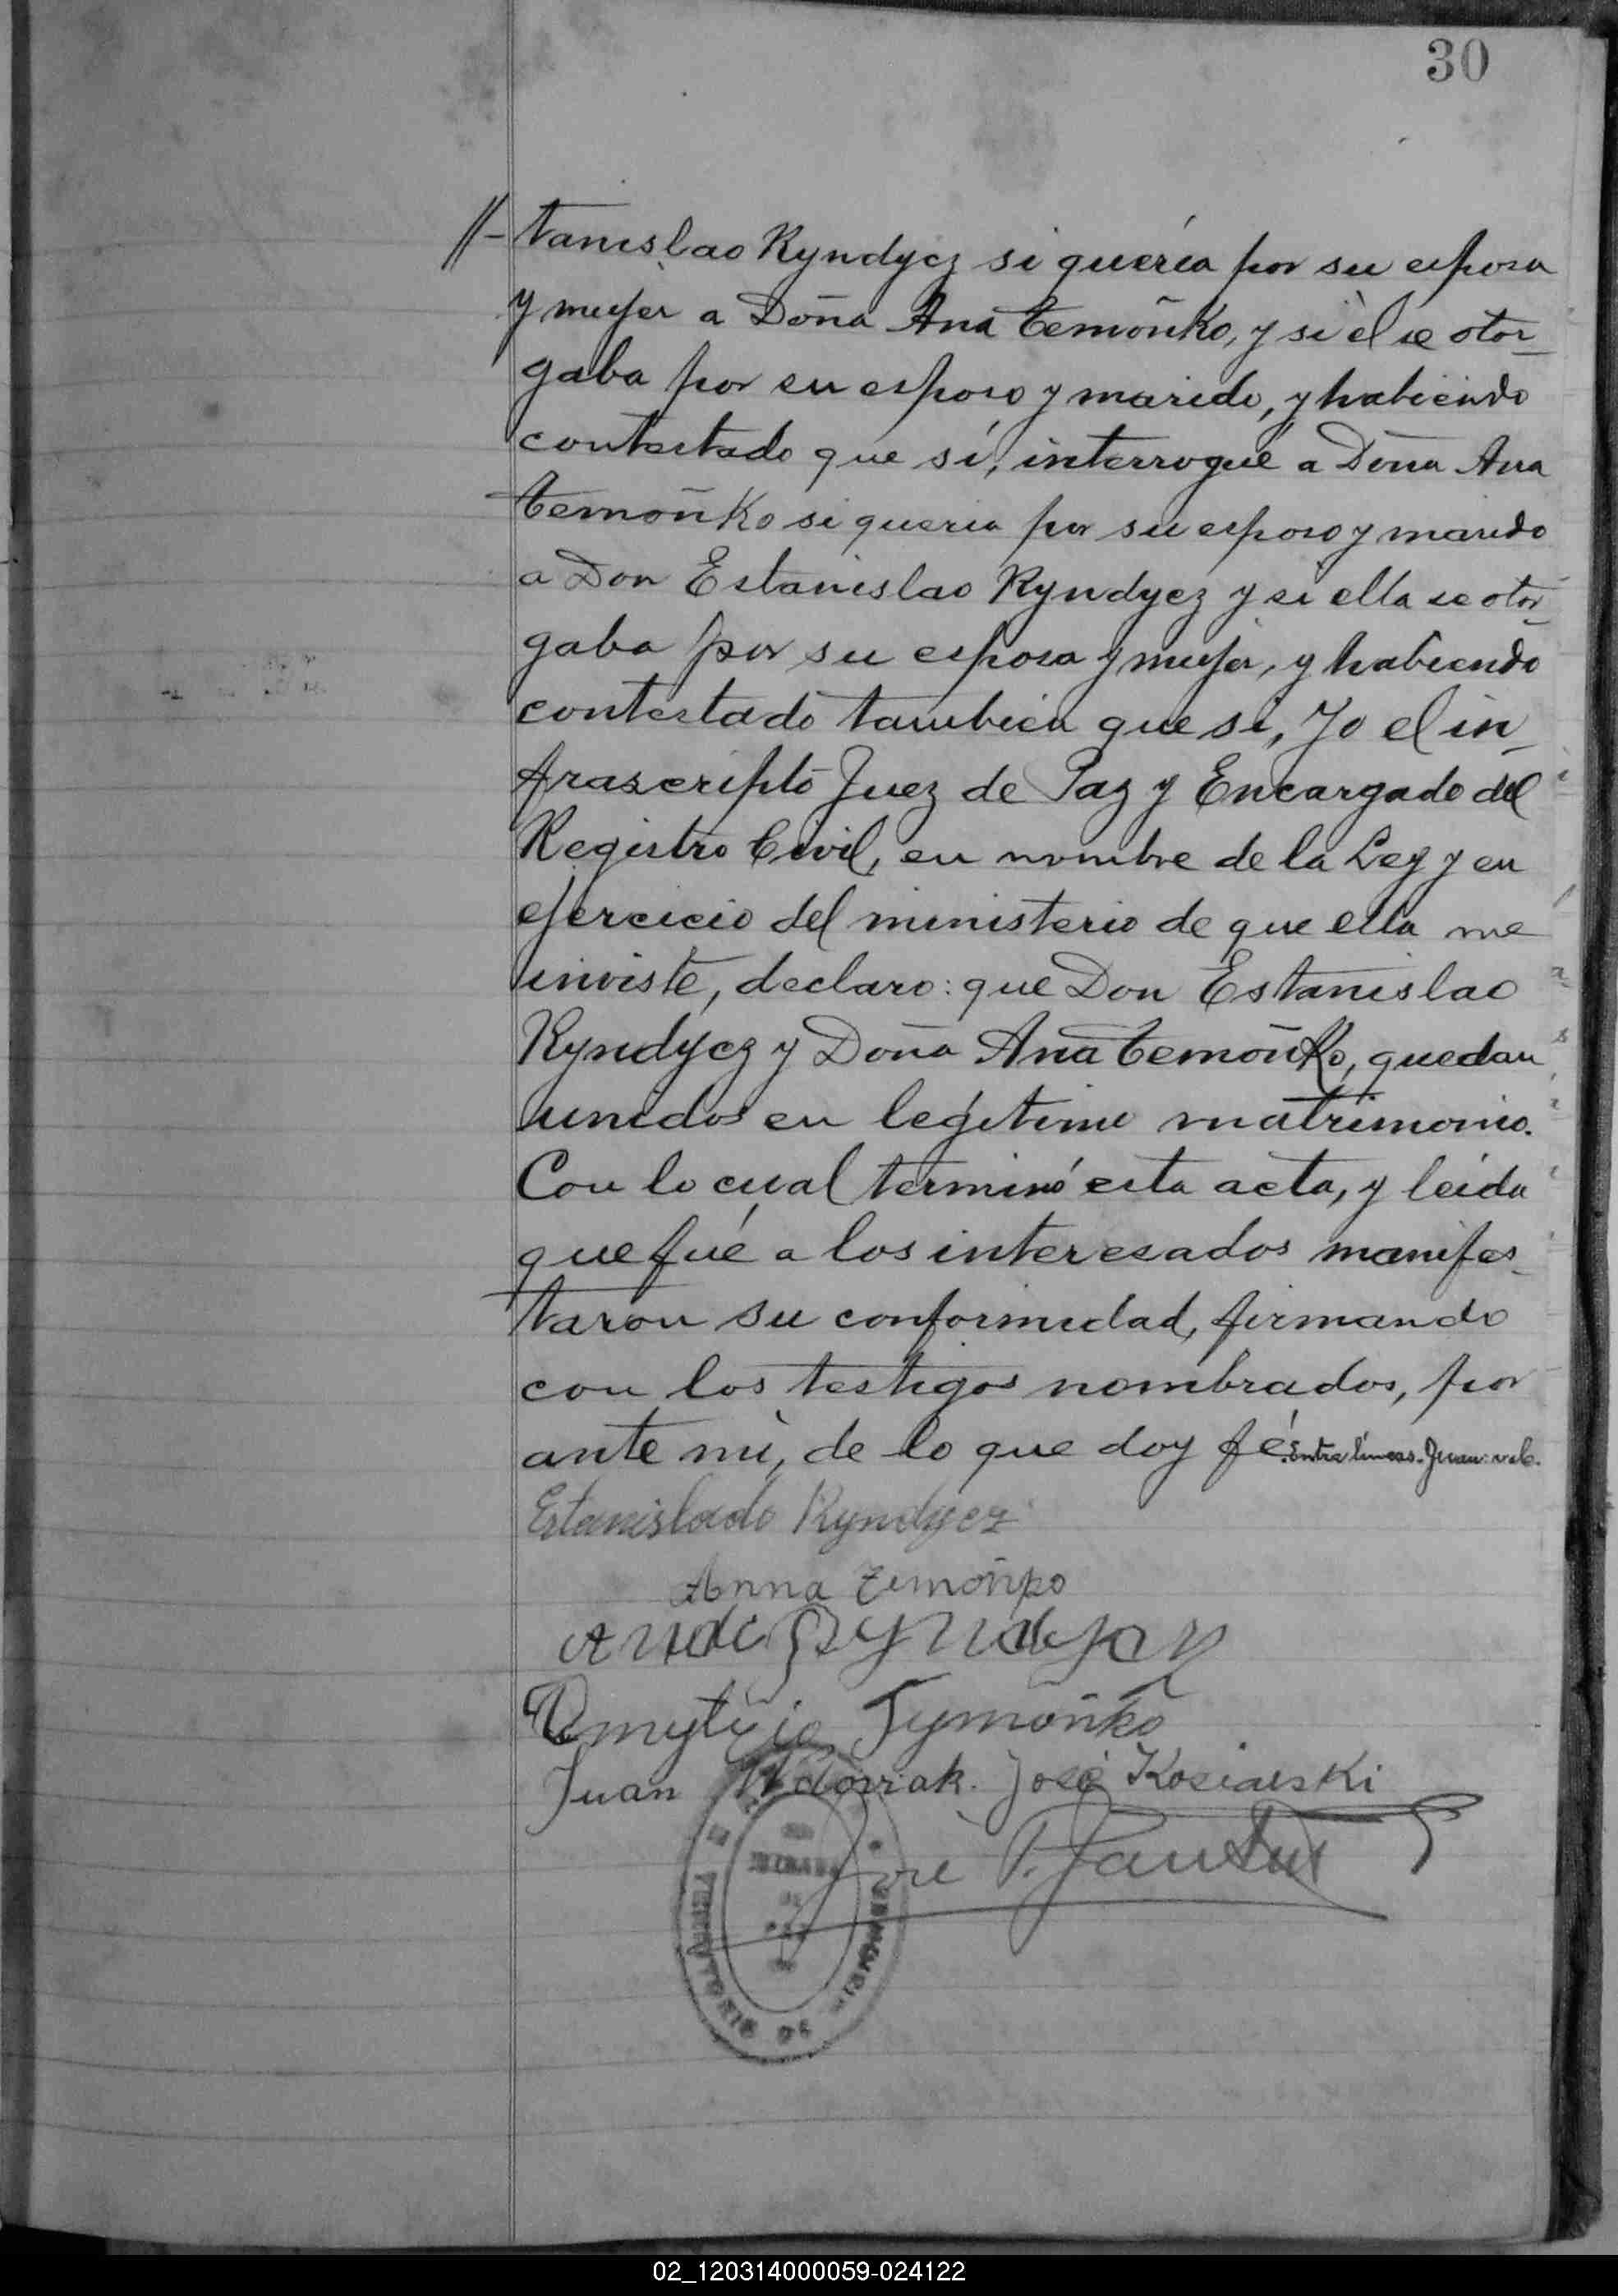 30
//-tanislao Kyndycz si quería por su esposa
y mujer a Doña Ana Cemoñko, y si èl se otor_
gaba por su esposo y marido, y habiendo
contestado que sí, interrogué a Doña Ana
Cemoñko si queria por su esposo y marido
a Don Estanislao Kyndycz y si ella se otor_
gaba por su esposa y mujer, y habiendo
contestado tambien que si, Yo el in_
frascripto Juez de Paz y Encargado del
Registro Civil, en nombre de la Ley y en
ejercicio del ministerio de que ella me
inviste, declaro: que Don Estanislao
Kyndycz y Doña Ana Cemoñko, quedan
unidos en legitimo matrimonio.
Con lo cual terminó esta acta, y leida
que fué a los interesados manifes_
taron su conformidad, firmando
con los testigos nombrados, por
ante mi, de lo que doy fé. Entre lineas. Juan: vale.
Estanislado Kyndycz
Anna Zemoñko
Tymoñko
Juan José Kosiarski
José P.
02_120314000059-024122